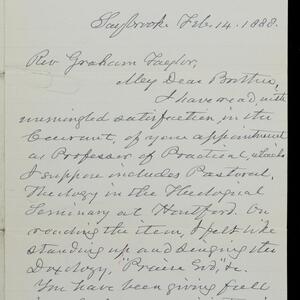 Saybrook. Feb. 14. 1888.
Rev Graham Taylor,
My Dear Brother,
I have read, with
unmingled satisfaction in the
Courant, of your appointment
as Professor of Practical, which
I suppose includes Pastoral
Theology in the Theological
Seminary at Hartford. On
reading the item, I felt like
standing up and singing the
Doxology, "Praise God," &c.
You have been giving full